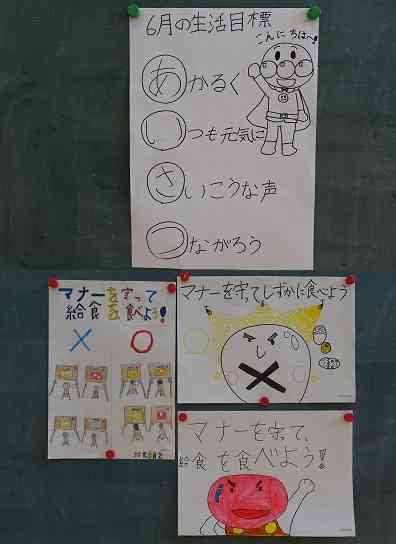 6月の生活目標
こんにちは〜!
あかるく
いつも元気に
さいこうな声
つながろう
マナーを守って
給食を食べよう!
マナーを守ってしずかに食べよう
マナーを守って、
給食を食べよう!